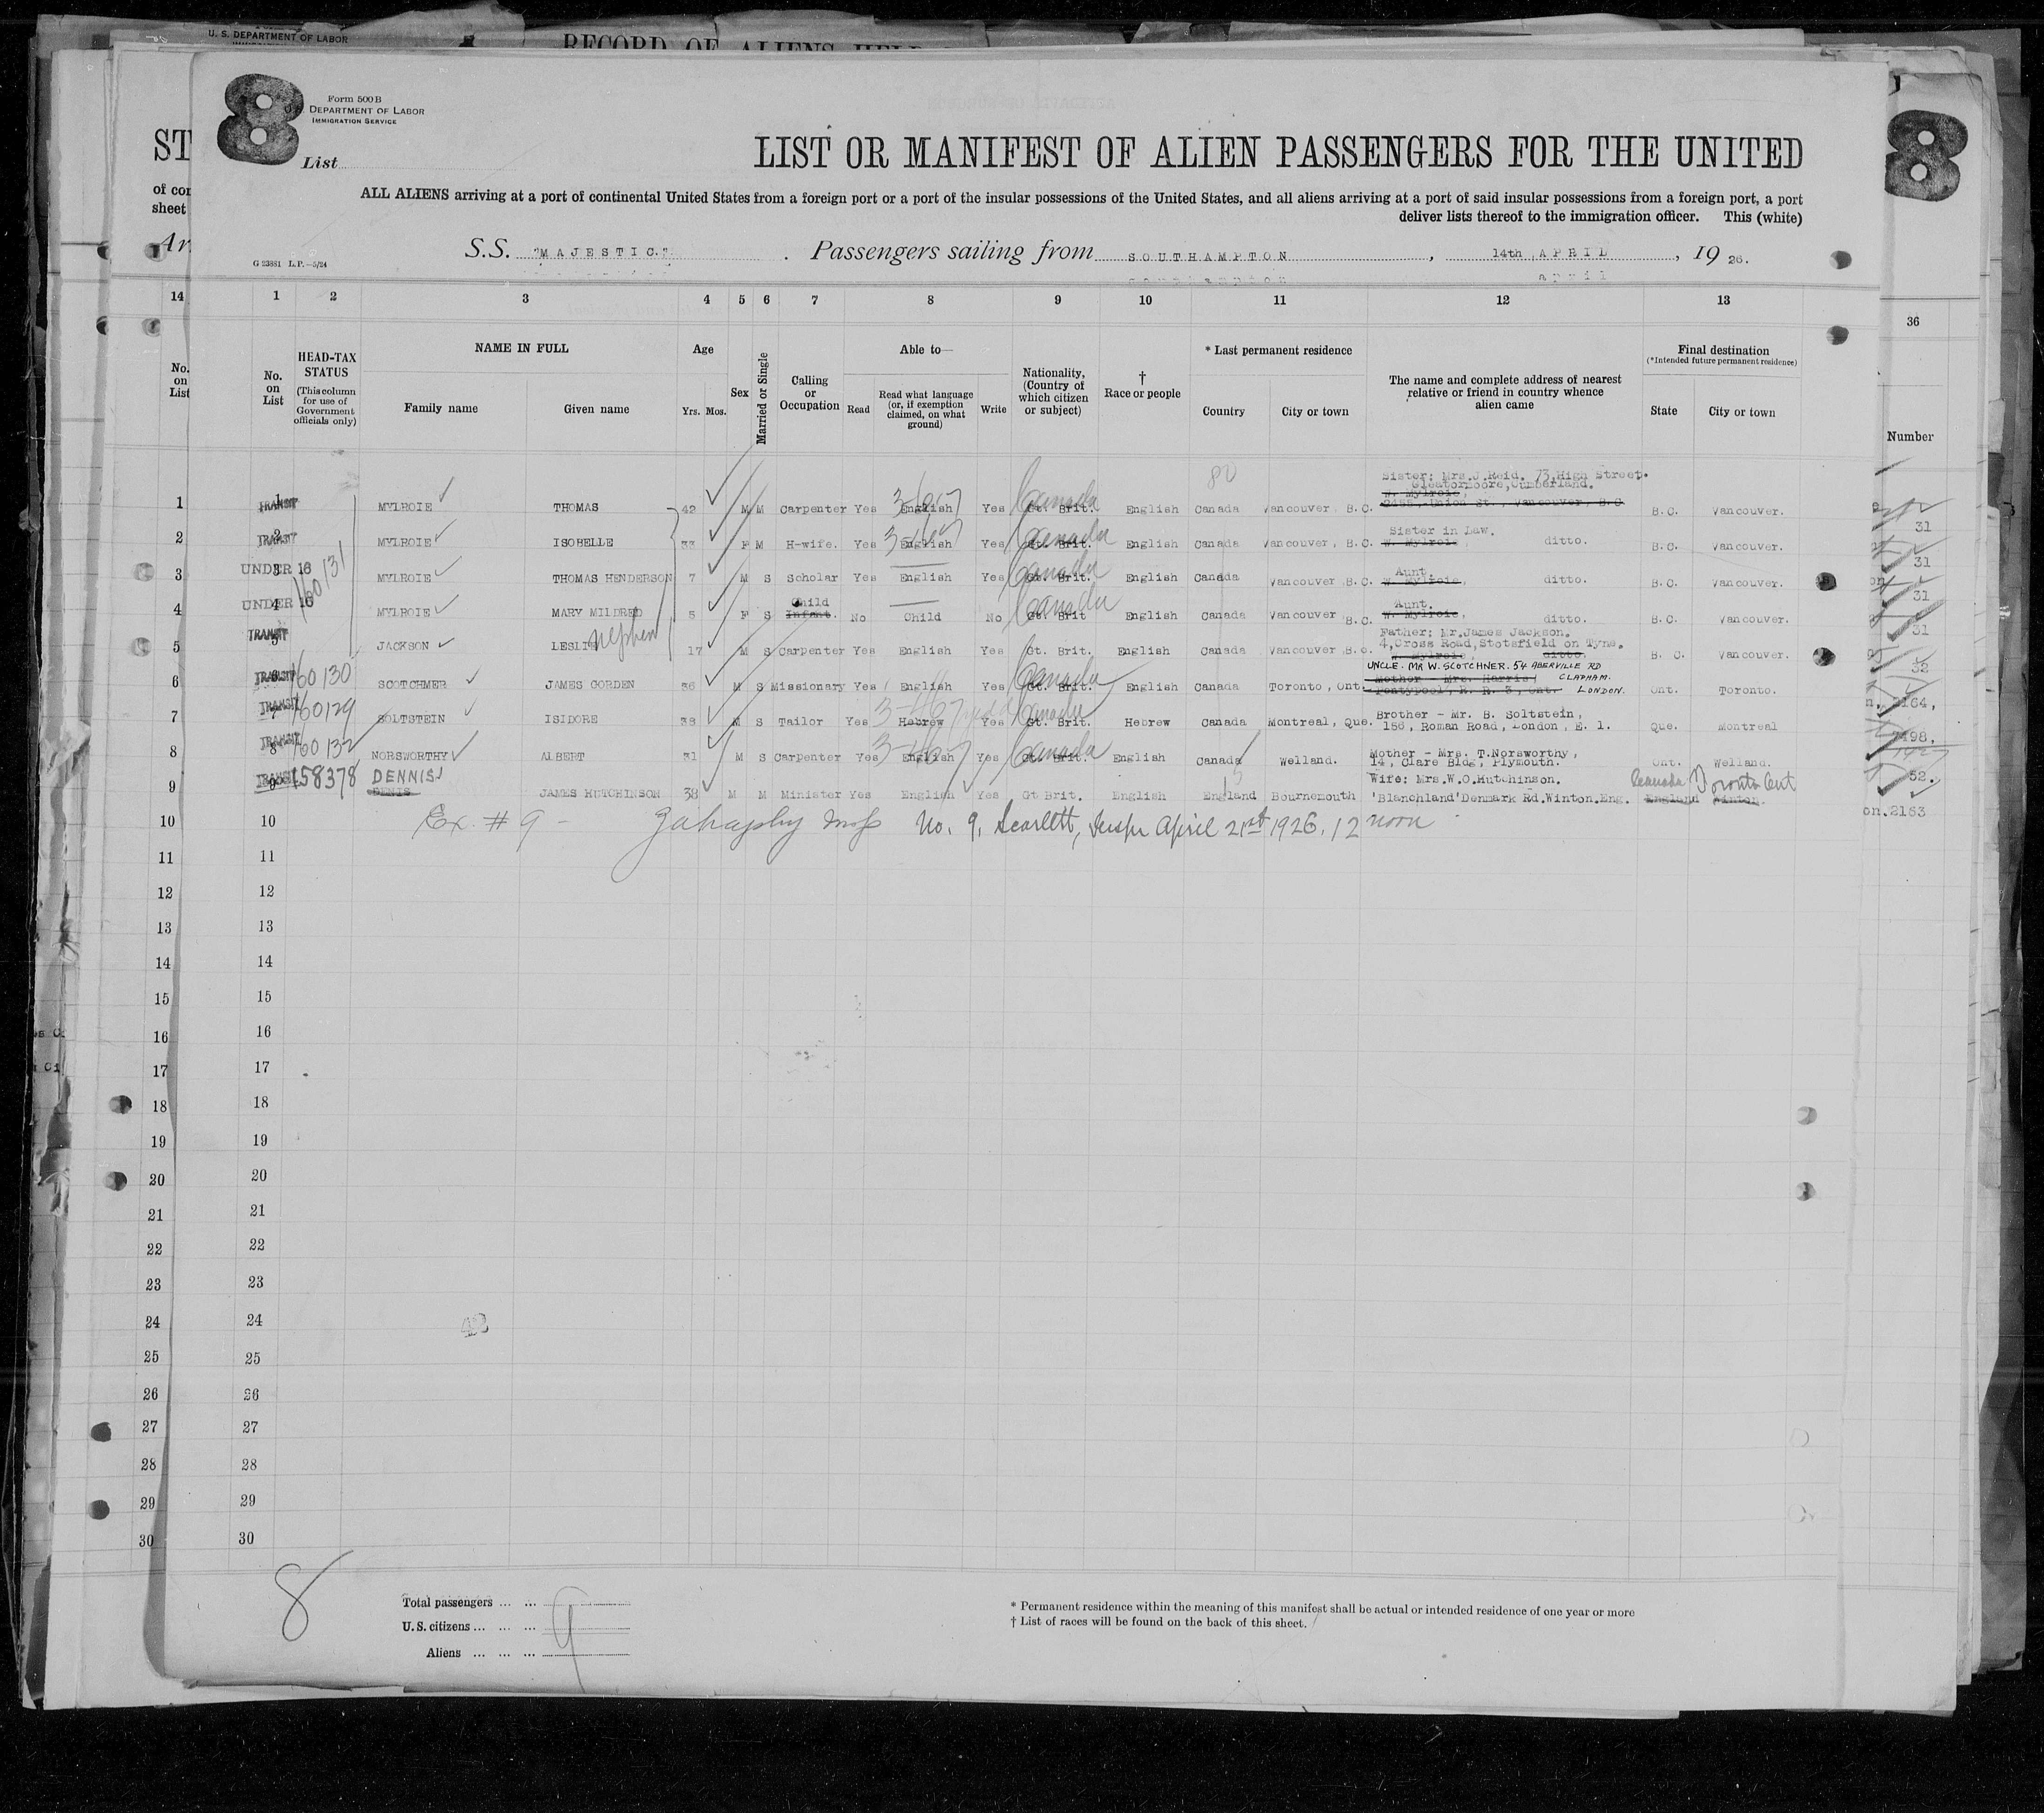 U. S. DEPARTMENT OF LABOR
RECORD OF ALIENS HELD
8
Form 500 B
DEPARTMENT OF LABOR
IMMIGRATION SERVICE
List
LIST OR MANIFEST OF ALIEN PASSENGERS FOR THE UNITED
8
ST
of con
sheet
ALL ALIENS arriving at a port of continental United States from a foreign port or a port of the insular possessions of the United States, and all aliens arriving at a port of said insular possessions from a foreign port, a port
deliver lists thereof to the immigration officer. This (white)
Ar
S.S. "MAJESTIC." . Passengers sailing from SOUTHAMPTON, 14th APRIL, 19 26.
G 23881 L.P.—5/24
14 1 2 3 4 5 6 7 8 9 10 11 12 13 36
No. on List
No. on List
HEAD-TAX STATUS
(This column for use of Government officials only)
NAME IN FULL
Family name
Given name
Age
Yrs. Mos.
Sex
Married or Single
Calling or Occupation
Able to—
Read
Read what language (or, if exemption claimed, on what ground)
Write
Nationality, (Country of which citizen or subject)
† Race or people
* Last permanent residence
Country
City or town
The name and complete address of nearest relative or friend in country whence alien came
Final destination
(*Intended future permanent residence)
State
City or town
Number
80
Sister: Mrs.J.Reid. 73,High Street.
Cleatormoore,Cumberland.
W. Mylroie,
1 1 TRANSIT MYLROIE THOMAS 42 M M Carpenter Yes English Yes Gt. Brit. Canada English Canada Vancouver, B.C. 2455, Union St., Vancouver, B.C B.C. Vancouver.
Sister in Law.
2 2 TRANSIT MYLROIE ISOBELLE 33 F M H-wife. Yes English Yes Gt. Brit. Canada English Canada Vancouver, B.C. W. Mylroie, ditto. B.C. Vancouver. 31
Aunt
3 UNDER 16 3 160131 MYLROIE THOMAS HENDERSON 7 M S Scholar Yes English Yes Gt. Brit. Canada English Canada Vancouver B.C. W. Mylroie, ditto. B.C. Vancouver. 31
Child
Aunt.
4 UNDER 16 4 MYLROIE MARY MILDRED 5 F S Infant. No Child No Gt. Brit Canada English Canada Vancouver B.C. W. Mylroie, ditto. B.C. Vancouver. 31
Father: Mr.James Jackson.
4,Cross Road,Stotsfield on Tyne.
5 TRANSIT 5 JACKSON LESLIE nephew 17 M S Carpenter Yes English Yes Gt. Brit. English Canada Vancouver B.C. W. Mylroie, ditto. B. C. Vancouver. 31
UNCLE. MR W. SCOTCHNER. 54 ABERVILLE RD
32
6 TRANSIT 160130 SCOTCHMER JAMES GORDEN 36 M S Missionary Yes English Yes Gt. Brit. Canada English Canada Toronto, Ont. Mother - Mrs. Harris, CLAPHAM.
Pontypool, R. R. 3, Ont. LONDON. Ont. Toronto.
2164,
7 TRANSIT 160129 SOLTSTEIN ISIDORE 38 M S Tailor Yes Hebrew Yes Gt. Brit. Canada Hebrew Canada Montreal, Que. Brother - Mr. B. Soltstein,
156, Roman Road, London, E. 1. Que. Montreal
498.
8 TRANSIT 8 160132 NORSWORTHY ALBERT 31 M S Carpenter Yes English Yes Gt. Brit. Canada English Canada Welland. Mother - Mrs. T.Norsworthy,
14, Clare Bldg, Plymouth. Ont. Welland.
52.
9 TRANSIT 9 158378 DENNIS
DENIS JAMES HUTCHINSON 38 M M Minister Yes English Yes Gt Brit. English England Bournemouth Wife: Mrs.W.O.Hutchinson.
'Blanchland'Denmark Rd.Winton.Eng. England Winton. Canada Toronto Ont
on.2163
10 10 Ex. # 9 - No. 9, Scarlett, Inspr April 21st 1926, 12 noon
11 11
12 12
13 13
14 14
15 15
16 16
17 17
18 18
19 19
20 20
21 21
22 22
23 23
24 24
25 25
26 26
27 27
28 28
29 29
30 30
8
Total passengers ... ...
U.S. citizens ... ... ...
Aliens ... ... ...
9
* Permanent residence within the meaning of this manifest shall be actual or intended residence of one year or more
† List of races will be found on the back of this sheet.